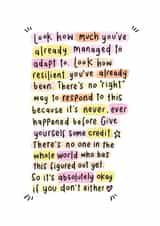 Look how much you've
already managed to
adapt to. Look how
resilient you've already
been. There's no "right"
way to respond to this
because it's never, ever
happened before Give
yourself some credit
There's no one in the
whole world who has
this figured out yet.
So it's absolutely okay
if you don't either